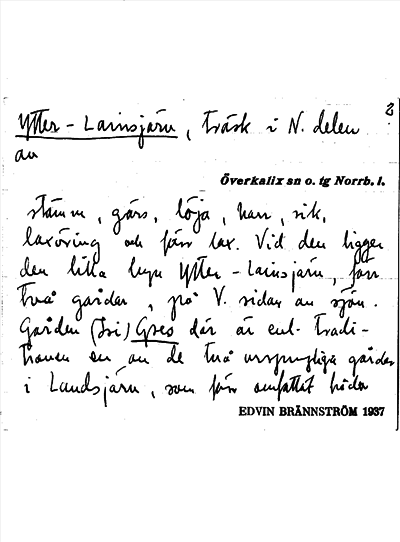 2
Ytter-Lainsjärv, träsk i N. delen
av
Överkalix sn o. tg Norrb. l.
stämm, gärs, löja, harr, sik,
laxöring och förr lax. Vid den ligger
den lilla byn Ytter-Lainsjärv, förr
två gårdar, på V. sidan av sjön.
Gården Gres där är enl. tradi-
tionen en av de två ursprungliga gårdar
i Landsjärv, som förr omfattat båda
EDVIN BRÄNNSTRÖM 1937